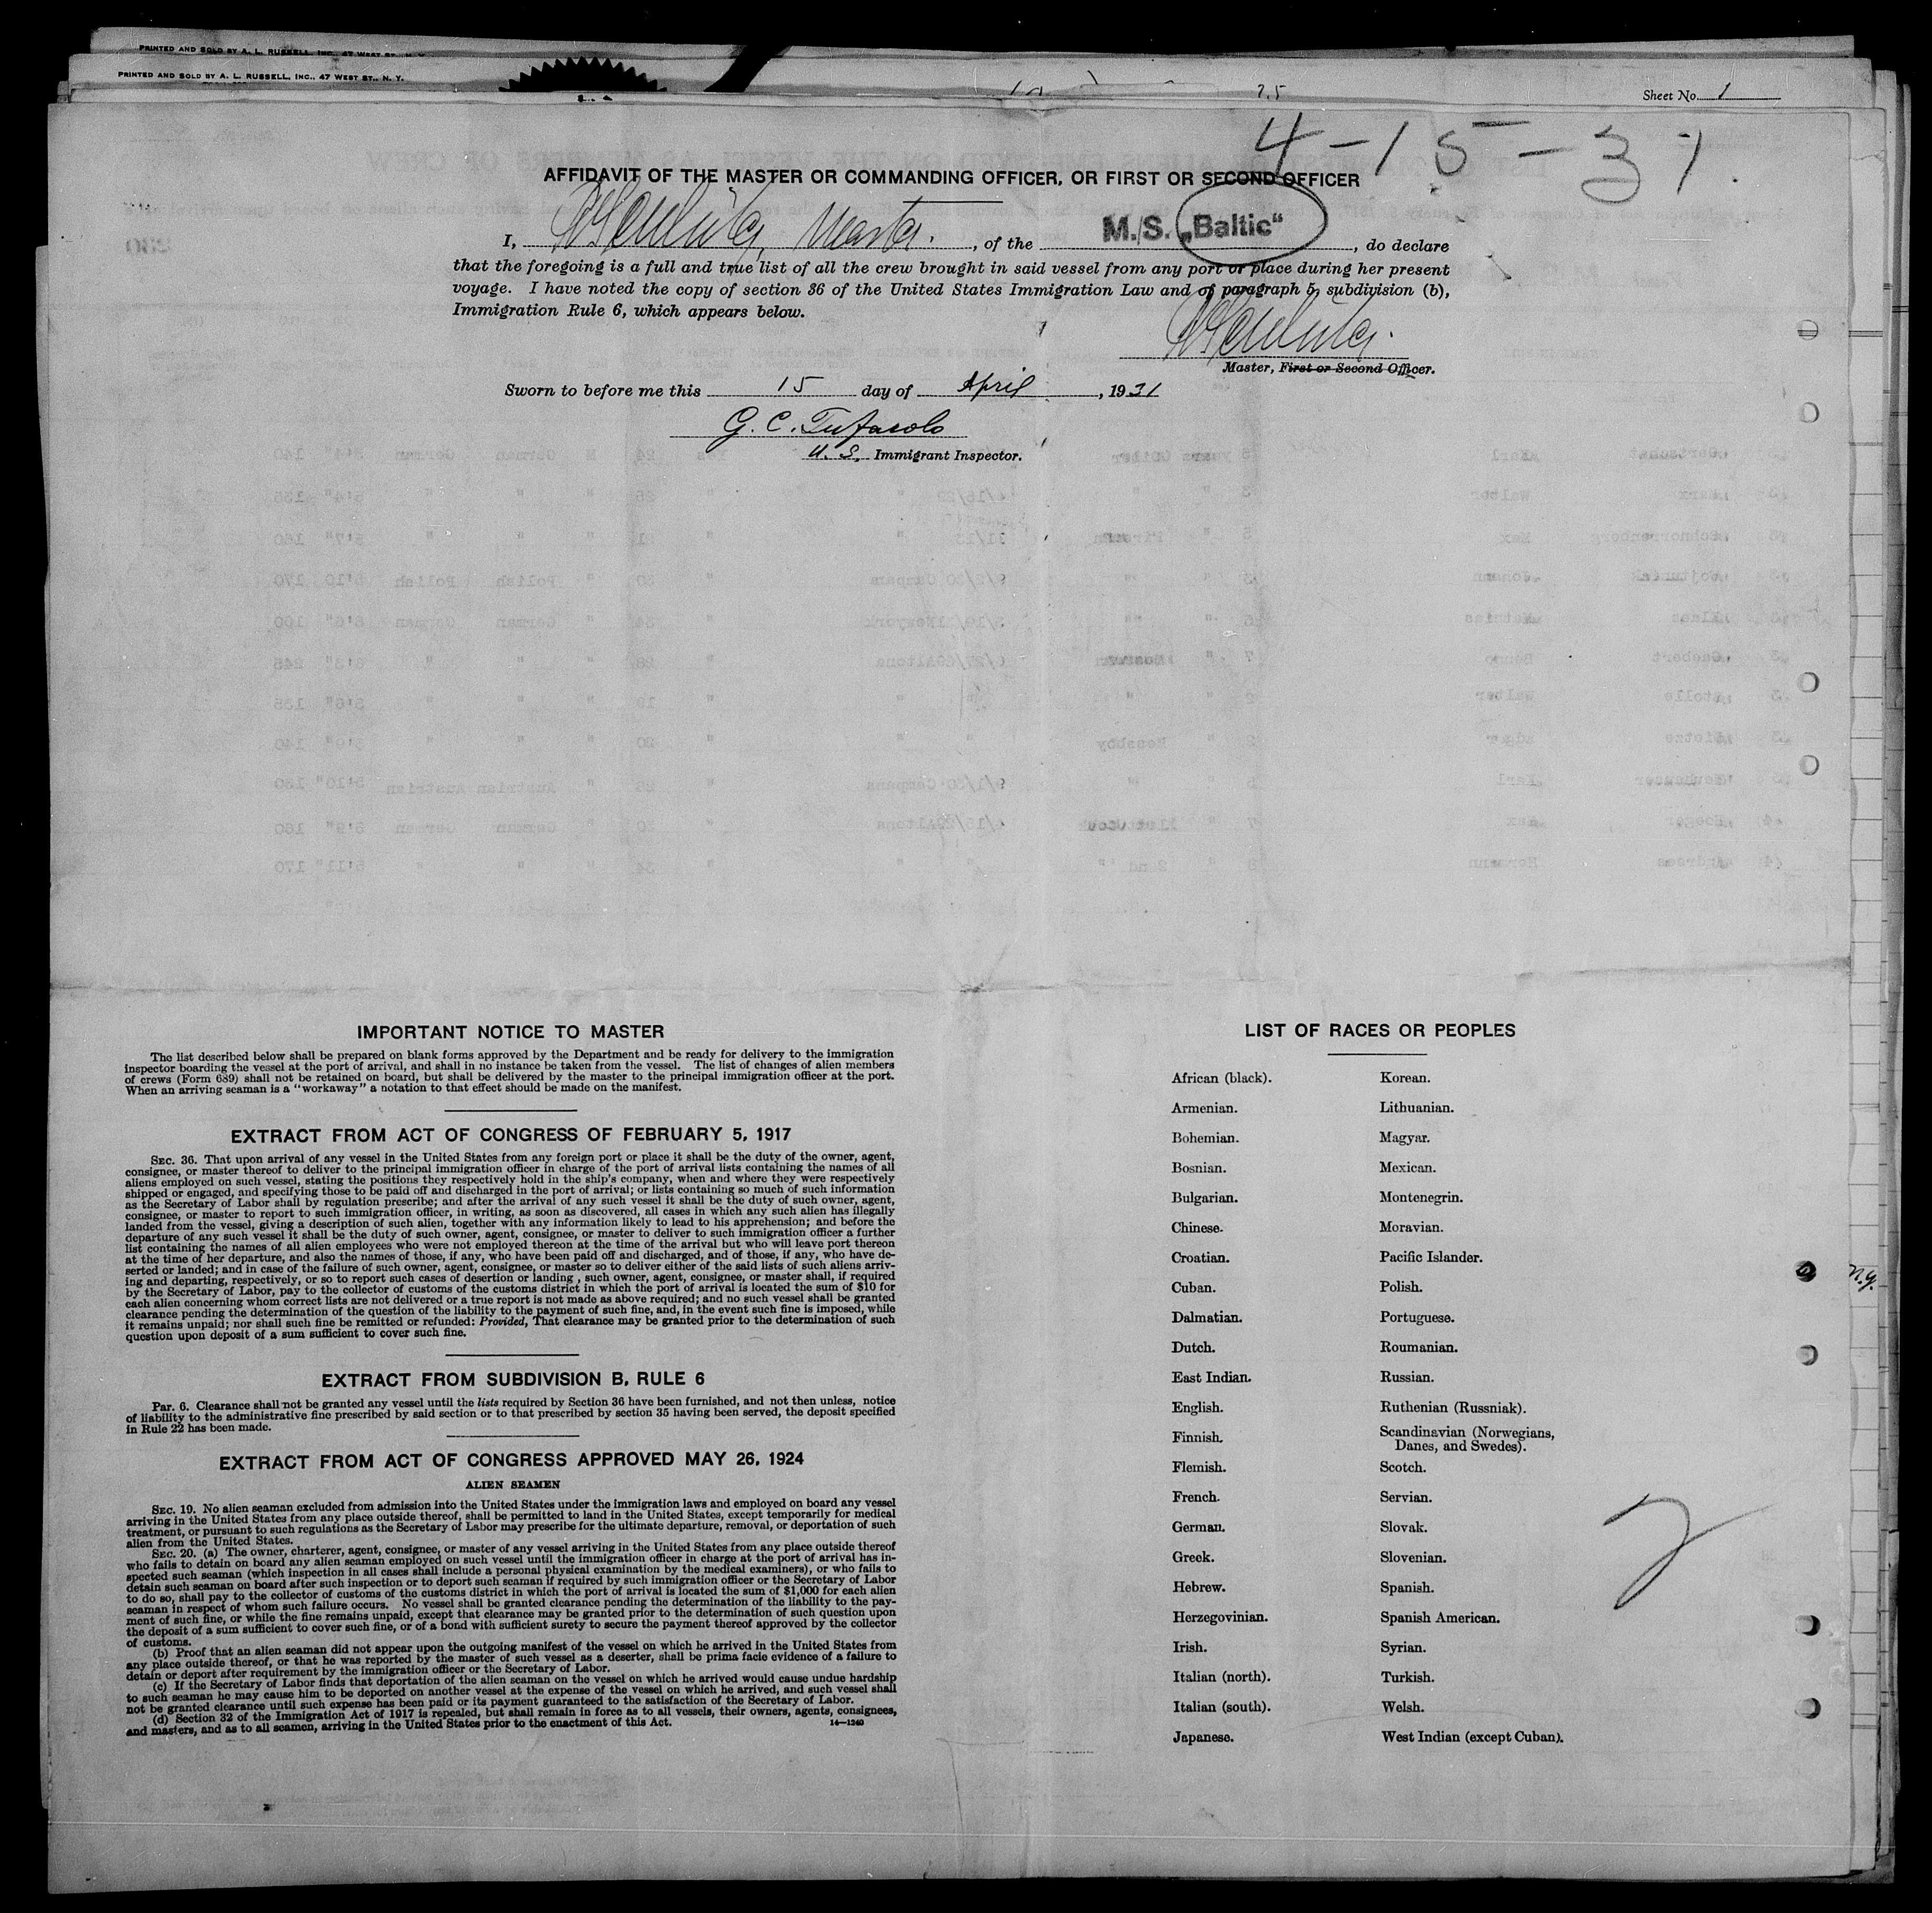 PRINTED AND SOLD BY A. L. RUSSELL, INC., 47 WEST ST., N. Y.
PRINTED AND SOLD BY A. L. RUSSELL, INC., 47 WEST ST., N. Y.
Sheet No. 1
4-15-31.
AFFIDAVIT OF THE MASTER OR COMMANDING OFFICER, OR FIRST OR SECOND OFFICER
I, Master. , of the M./S. „Baltic“ , do declare
that the foregoing is a full and true list of all the crew brought in said vessel from any port or place during her present
voyage. I have noted the copy of section 36 of the United States Immigration Law and of paragraph 5, subdivision (b),
Immigration Rule 6, which appears below.
Master, First or Second Officer.
Sworn to before me this 15 day of April , 1931
G. C.
U. S. Immigrant Inspector.
IMPORTANT NOTICE TO MASTER
The list described below shall be prepared on blank forms approved by the Department and be ready for delivery to the immigration
inspector boarding the vessel at the port of arrival, and shall in no instance be taken from the vessel. The list of changes of alien members
of crews (Form 689) shall not be retained on board, but shall be delivered by the master to the principal immigration officer at the port.
When an arriving seaman is a "workaway" a notation to that effect should be made on the manifest.
EXTRACT FROM ACT OF CONGRESS OF FEBRUARY 5, 1917
SEC. 36. That upon arrival of any vessel in the United States from any foreign port or place it shall be the duty of the owner, agent,
consignee, or master thereof to deliver to the principal immigration officer in charge of the port of arrival lists containing the names of all
aliens employed on such vessel, stating the positions they respectively hold in the ship's company, when and where they were respectively
shipped or engaged, and specifying those to be paid off and discharged in the port of arrival; or lists containing so much of such information
as the Secretary of Labor shall by regulation prescribe; and after the arrival of any such vessel it shall be the duty of such owner, agent,
consignee, or master to report to such immigration officer, in writing, as soon as discovered, all cases in which any such alien has illegally
landed from the vessel, giving a description of such alien, together with any information likely to lead to his apprehension; and before the
departure of any such vessel it shall be the duty of such owner, agent, consignee, or master to deliver to such immigration officer a further
list containing the names of all alien employees who were not employed thereon at the time of the arrival but who will leave port thereon
at the time of her departure, and also the names of those, if any, who have been paid off and discharged, and of those, if any, who have de-
serted or landed; and in case of the failure of such owner, agent, consignee, or master so to deliver either of the said lists of such aliens arriv-
ing and departing, respectively, or so to report such cases of desertion or landing , such owner, agent, consignee, or master shall, if required
by the Secretary of Labor, pay to the collector of customs of the customs district in which the port of arrival is located the sum of $10 for
each alien concerning whom correct lists are not delivered or a true report is not made as above required; and no such vessel shall be granted
clearance pending the determination of the question of the liability to the payment of such fine, and, in the event such fine is imposed, while
it remains unpaid; nor shall such fine be remitted or refunded: Provided, That clearance may be granted prior to the determination of such
question upon deposit of a sum sufficient to cover such fine.
EXTRACT FROM SUBDIVISION B, RULE 6
Par. 6. Clearance shall not be granted any vessel until the lists required by Section 36 have been furnished, and not then unless, notice
of liability to the administrative fine prescribed by said section or to that prescribed by section 35 having been served, the deposit specified
in Rule 22 has been made.
EXTRACT FROM ACT OF CONGRESS APPROVED MAY 26, 1924
ALIEN SEAMEN
SEC. 19. No alien seaman excluded from admission into the United States under the immigration laws and employed on board any vessel
arriving in the United States from any place outside thereof, shall be permitted to land in the United States, except temporarily for medical
treatment, or pursuant to such regulations as the Secretary of Labor may prescribe for the ultimate departure, removal, or deportation of such
alien from the United States.
SEC. 20. (a) The owner, charterer, agent, consignee, or master of any vessel arriving in the United States from any place outside thereof
who fails to detain on board any alien seaman employed on such vessel until the immigration officer in charge at the port of arrival has in-
spected such seaman (which inspection in all cases shall include a personal physical examination by the medical examiners), or who fails to
detain such seaman on board after such inspection or to deport such seaman if required by such immigration officer or the Secretary of Labor
to do so, shall pay to the collector of customs of the customs district in which the port of arrival is located the sum of $1,000 for each alien
seaman in respect of whom such failure occurs. No vessel shall be granted clearance pending the determination of the liability to the pay-
ment of such fine, or while the fine remains unpaid, except that clearance may be granted prior to the determination of such question upon
the deposit of a sum sufficient to cover such fine, or of a bond with sufficient surety to secure the payment thereof approved by the collector
of customs.
(b) Proof that an alien seaman did not appear upon the outgoing manifest of the vessel on which he arrived in the United States from
any place outside thereof, or that he was reported by the master of such vessel as a deserter, shall be prima facie evidence of a failure to
detain or deport after requirement by the immigration officer or the Secretary of Labor.
(c) If the Secretary of Labor finds that deportation of the alien seaman on the vessel on which he arrived would cause undue hardship
to such seaman he may cause him to be deported on another vessel at the expense of the vessel on which he arrived, and such vessel shall
not be granted clearance until such expense has been paid or its payment guaranteed to the satisfaction of the Secretary of Labor.
(d) Section 32 of the Immigration Act of 1917 is repealed, but shall remain in force as to all vessels, their owners, agents, consignees,
and masters, and as to all seamen, arriving in the United States prior to the enactment of this Act.
14—1240
LIST OF RACES OR PEOPLES
African (black).
Armenian.
Bohemian.
Bosnian.
Bulgarian.
Chinese.
Croatian.
Cuban.
Dalmatian.
Dutch.
East Indian.
English.
Finnish.
Flemish.
French.
German.
Greek.
Hebrew.
Herzegovinian.
Irish.
Italian (north).
Italian (south).
Japanese.
Korean.
Lithuanian.
Magyar.
Mexican.
Montenegrin.
Moravian.
Pacific Islander.
Polish.
Portuguese.
Roumanian.
Russian.
Ruthenian (Russniak).
Scandinavian (Norwegians,
Danes, and Swedes).
Scotch.
Servian.
Slovak.
Slovenian.
Spanish.
Spanish American.
Syrian.
Turkish.
Welsh.
West Indian (except Cuban).
2
N.Y.